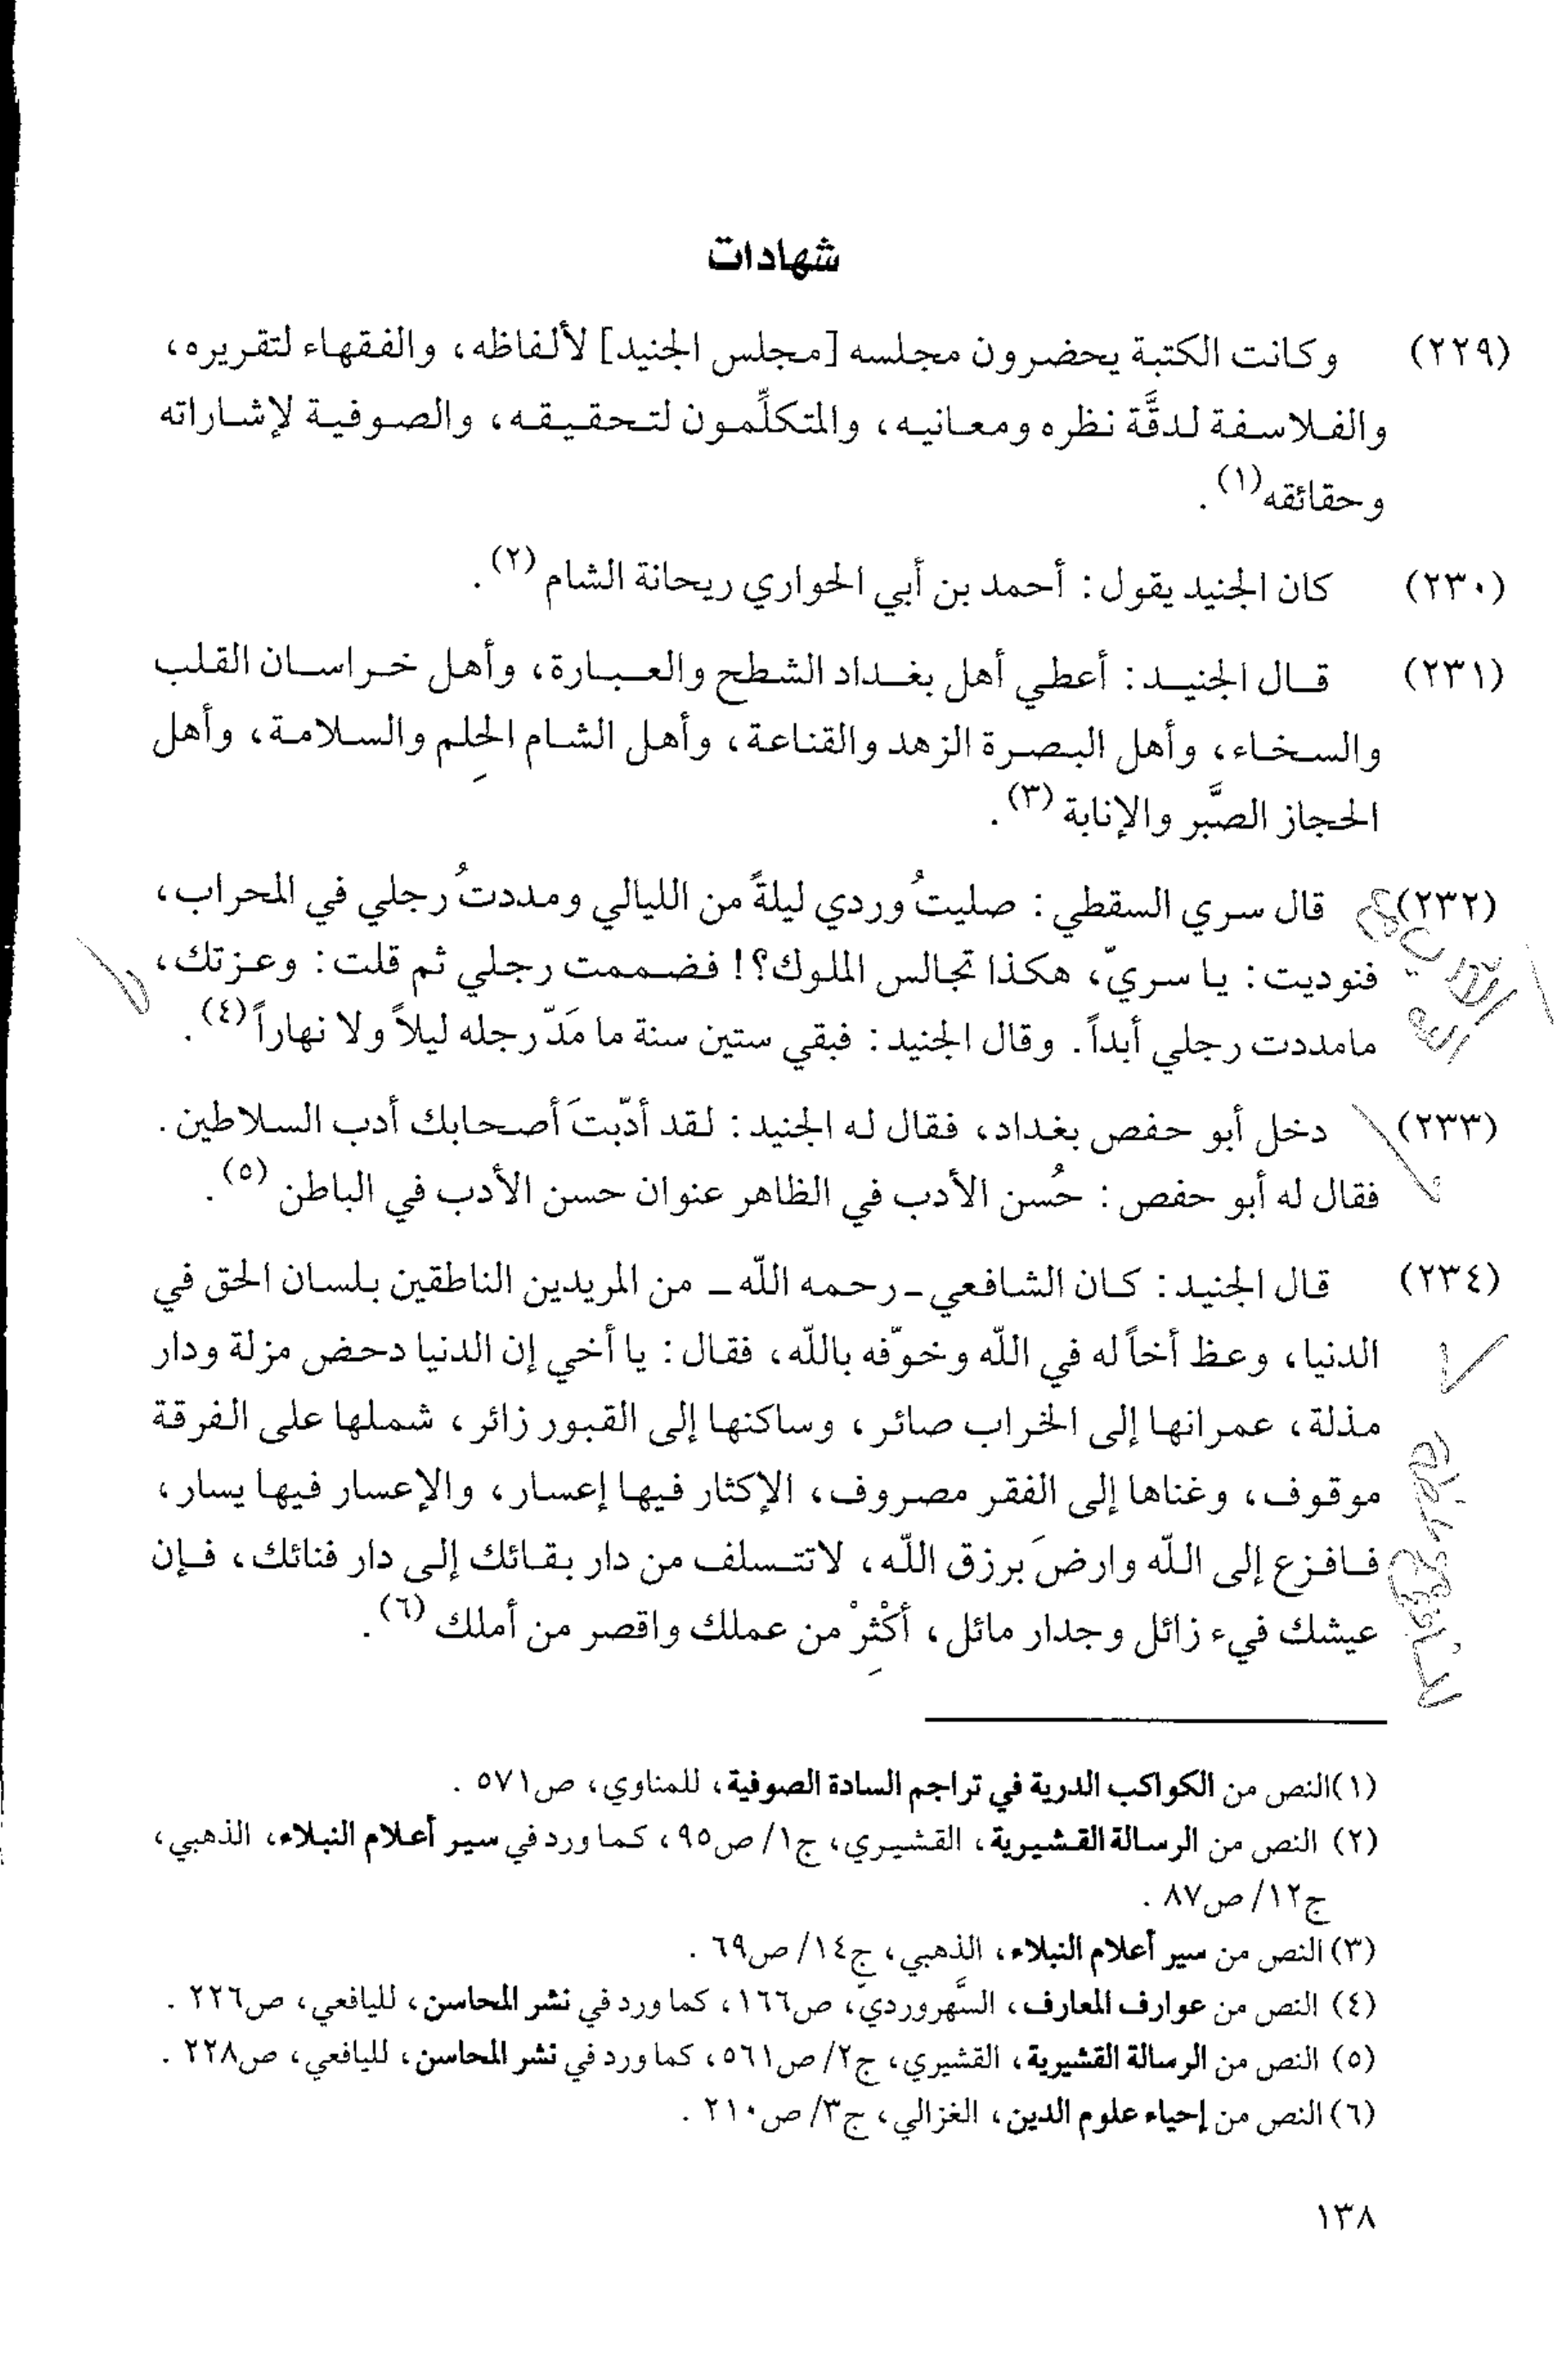 شهادات
(٢٢٩) وكانت الكتبة يحضرون مجلسه [مجلس الجنيد] لألفاظه، والفقهاء لتقريره،
والفلاسفة لدقَّة نظره ومعانيه، والمتكلِّمون لتحقيقه، والصوفية لإشاراته
وحقائقه(١).
(٢٣٠) كان الجنيد يقول: أحمد بن أبي الحواري ريحانة الشام (٢).
(٢٣١) قال الجنيد: أعطي أهل بغداد الشطح والعبارة، وأهل خراسان القلب
والسخاء، وأهل البصرة الزهد والقناعة، وأهل الشام الحِلم والسلامة، وأهل
الحجاز الصَّبر والإنابة (٣).
(٢٣٢) قال سري السقطي: صليتُ وردي ليلةً من الليالي ومددتُ رجلي في المحراب،
فنوديت: يا سريّ، هكذا تجالس الملوك؟! فضممت رجلي ثم قلت: وعزتك،
مامددت رجلي أبداً. وقال الجنيد: فبقي ستين سنة ما مَدّ رجله ليلاً ولا نهاراً (٤).
(٢٣٣) دخل أبو حفص بغداد، فقال له الجنيد: لقد أدّبتَ أصحابك أدب السلاطين.
فقال له أبو حفص: حُسن الأدب في الظاهر عنوان حسن الأدب في الباطن (٥).
(٢٣٤) قال الجنيد: كان الشافعي ـ رحمه اللّه ـ من المريدين الناطقين بلسان الحق في
الدنيا، وعظ أخاً له في اللّه وخوّفه باللّه، فقال: يا أخي إن الدنيا دحض مزلة ودار
مذلة، عمرانها إلى الخراب صائر، وساكنها إلى القبور زائر، شملها على الفرقة
موقوف، وغناها إلى الفقر مصروف، الإكثار فيها إعسار، والإعسار فيها يسار،
فافزع إلى اللّه وارضَ برزق اللّه، لاتتسلف من دار بقائك إلى دار فنائك، فإن
عيشك فيء زائل وجدار مائل، أكْثِرْ من عملك واقصر من أملك (٦).
(١)النص من الكواكب الدرية في تراجم السادة الصوفية، للمناوي، ص٥٧١.
(٢) النص من الرسالة القشيرية، القشيري، ج١/ ص٩٥، كما ورد في سير أعلام النبلاء، الذهبي،
ج١٢/ ص٨٧.
(٣) النص من سير أعلام النبلاء، الذهبي، ج١٤/ ص٦٩.
(٤) النص من عوارف المعارف، السَّهروردي، ص١٦٦، كما ورد في نشر المحاسن، لليافعي، ص٢٢٦.
(٥) النص من الرسالة القشيرية، القشيري، ج٢/ ص٥٦١، كما ورد في نشر المحاسن، لليافعي، ص٢٢٨.
(٦) النص من إحياء علوم الدين، الغزالي، ج٣/ ص٢١٠.
١٣٨